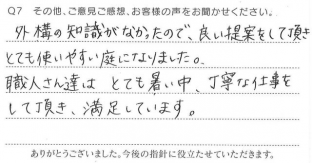 Q7 その他、ご意見ご感想、お客様の声をお聞かせください。
外構の知識がなかったので、良い提案をして頂き
とても使いやすい庭になりました。
職人さん達は とても暑い中、丁寧な仕事を
して頂き、満足しています。
ありがとうございました。今後の指針に役立たせていただきます。